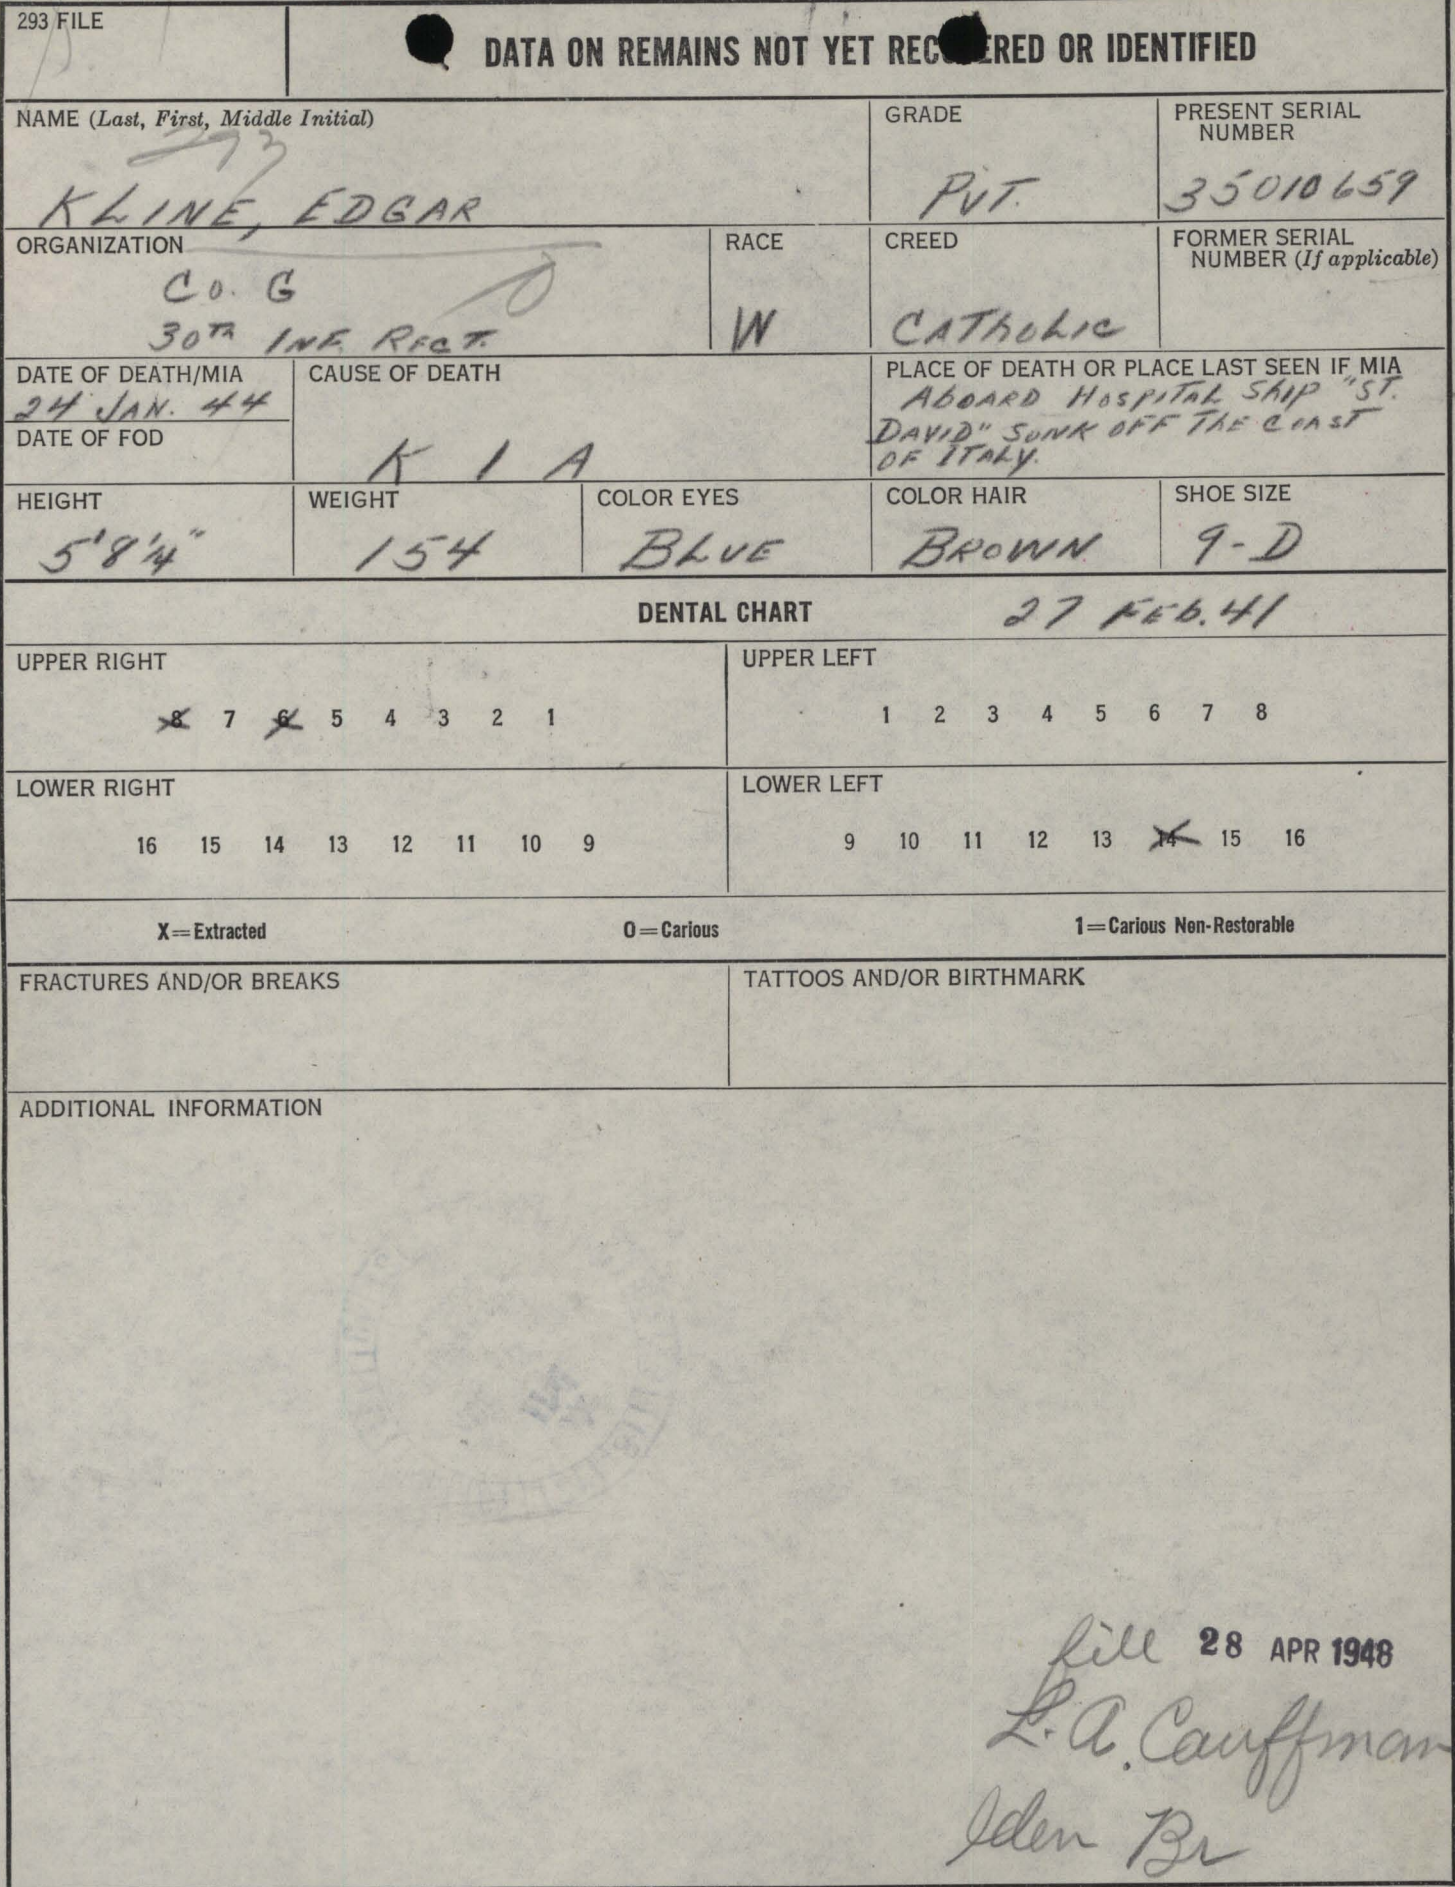 293 FILE
DATA ON REMAINS NOT YET RECOVERED OR IDENTIFIED
NAME (Last, First, Middle Initial)
293
KLINE, EDGAR
GRADE
PVT.
PRESENT SERIAL
NUMBER
35010659
ORGANIZATION
CO. G
30TH INF. REGT.
RACE
W
CREED
CATHOLIC
FORMER SERIAL
NUMBER (If applicable)
DATE OF DEATH/MIA
24 JAN. 44
DATE OF FOD
CAUSE OF DEATH
K I A
PLACE OF DEATH OR PLACE LAST SEEN IF MIA
ABOARD HOSPITAL SHIP "ST.
DAVID" SUNK OFF THE COAST
OF ITALY.
HEIGHT
5'8¼"
WEIGHT
154
COLOR EYES
BLUE
COLOR HAIR
BROWN
SHOE SIZE
9-D
DENTAL CHART 27 FEB. 41
UPPER RIGHT
8 7 6 5 4 3 2 1
UPPER LEFT
1 2 3 4 5 6 7 8
LOWER RIGHT
16 15 14 13 12 11 10 9
LOWER LEFT
9 10 11 12 13 14 15 16
X=Extracted 0=Carious 1=Carious Non-Restorable
FRACTURES AND/OR BREAKS
TATTOOS AND/OR BIRTHMARK
ADDITIONAL INFORMATION
file 28 APR 1948
L. A. Cauffman
Iden Br